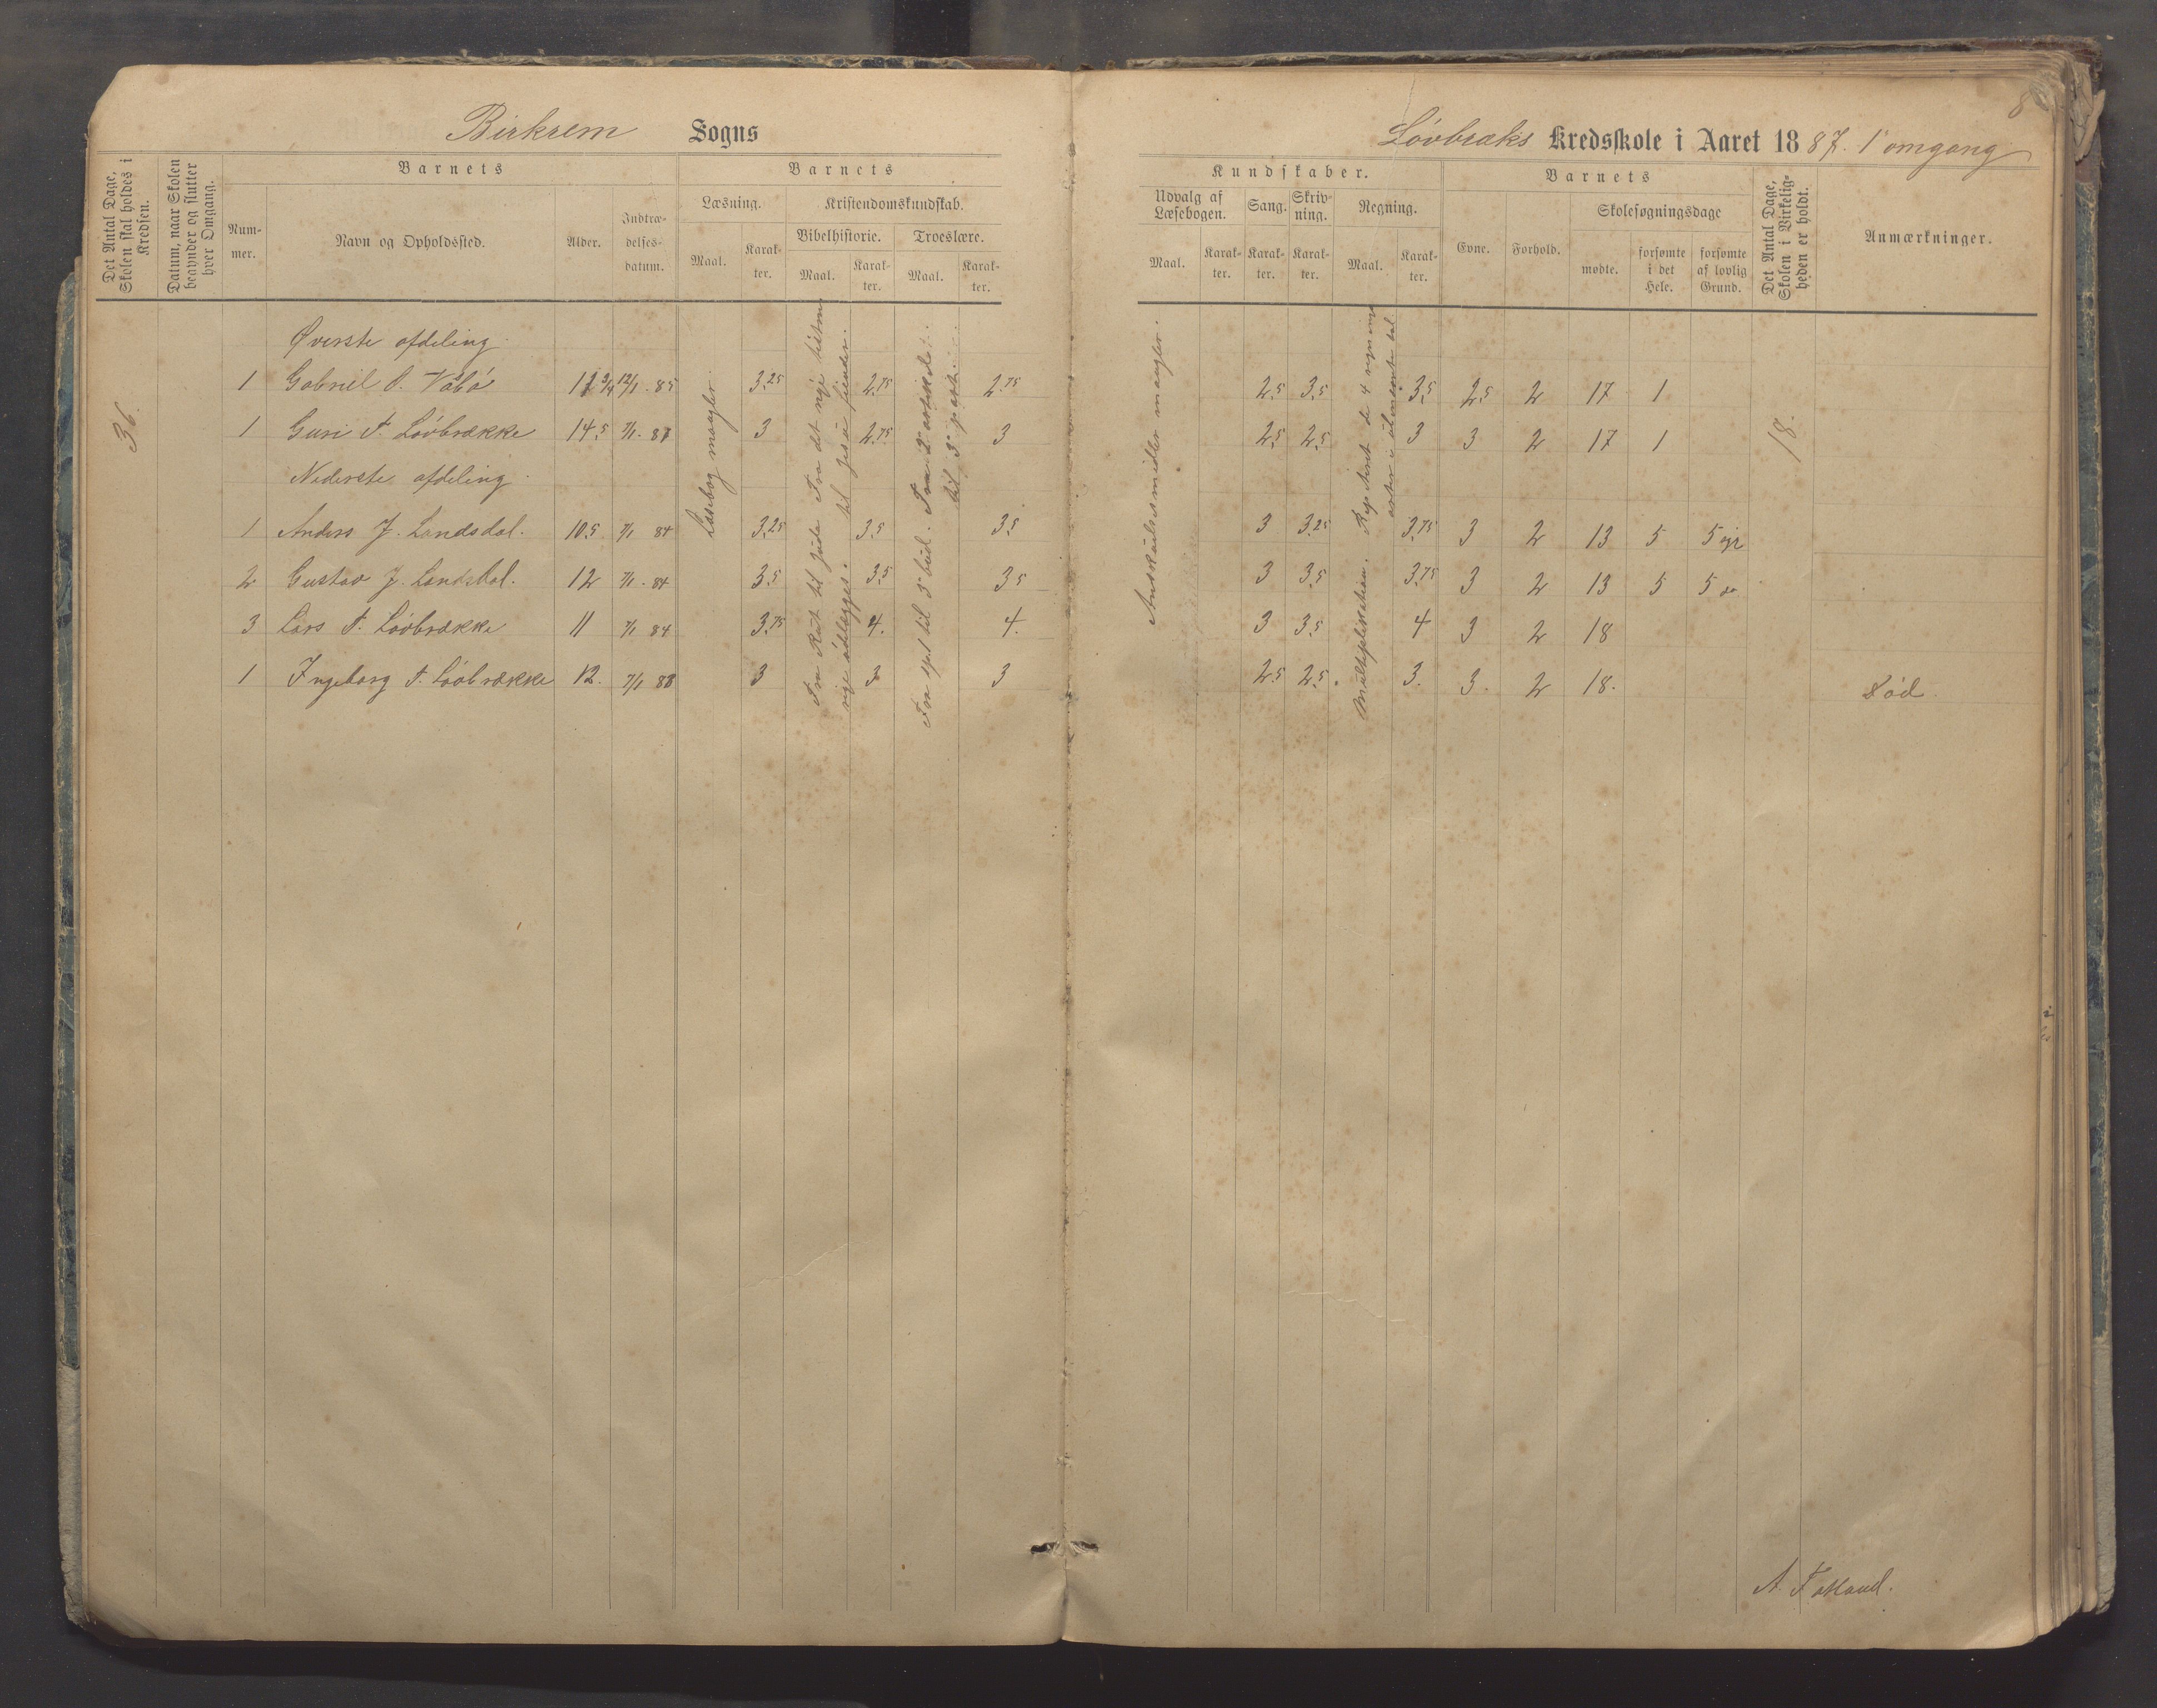 8
Birkrem Sogns
Løvbræks Kredsskole i Aaret 1887. 1ste omgang
Det Antal Dage, Skolen skal holdes i Kredsen.
Datum, naar Skolen begynder og slutter hver Omgang.
Barnets
Nummer.
Navn og Opholdssted.
Alder.
Indtrædelsesdatum.
Barnets
Læsning.
Maal.
Karakter.
Kristendomskundskab.
Bibelhistorie.
Maal.
Karakter.
Troeslære.
Maal.
Karakter.
Kundskaber.
Udvalg af Læsebogen.
Maal.
Karakter.
Sang.
Karakter.
Skrivning.
Karakter.
Regning.
Maal.
Karakter.
Barnets
Evne.
Forhold.
Skolesøgningsdage
mødte.
forsømte i det Hele.
forsømte af lovlig Grund.
Det Antal Dage, Skolen i Virkeligheden er holdt.
Anmærkninger.
36.
Øverste afdeling.
1 Gabriel O. 12/1 - 85 3.25 2.75 2.75 2.5 3.5 3.5 2.5 2 17 1
1 Guri T. Løvbrække 14.5 7/1 - 3 2.75 3 2.5 2.5 3 3 2 17 1
Nederste afdeling.
1 Anders J. Landsdal. 10.5 7/1 84 3.25 3.5 3.5 3 3.25 3.75 3 2 13 5 5
2 Gustav J. Landsdal. 12 7/1 - 84 3.5 3.5 3.5 3 3.5 3.75 3 2 13 5 5
3 Lars T. Løvbrække 11 7/1 84 3.75 4. 4. 3 3.5 4 3 2 18
1 Ingeborg T. Løvbrække 12. 7/1 3 3 3 2.5 2.5. 3. 3. 2 18.
Læsebog mangler.
til Jesu fiender.
Fra til 3 bud.
Anskuelsesmidler mangler.
Multiplikation.
18.
A. Fotland.